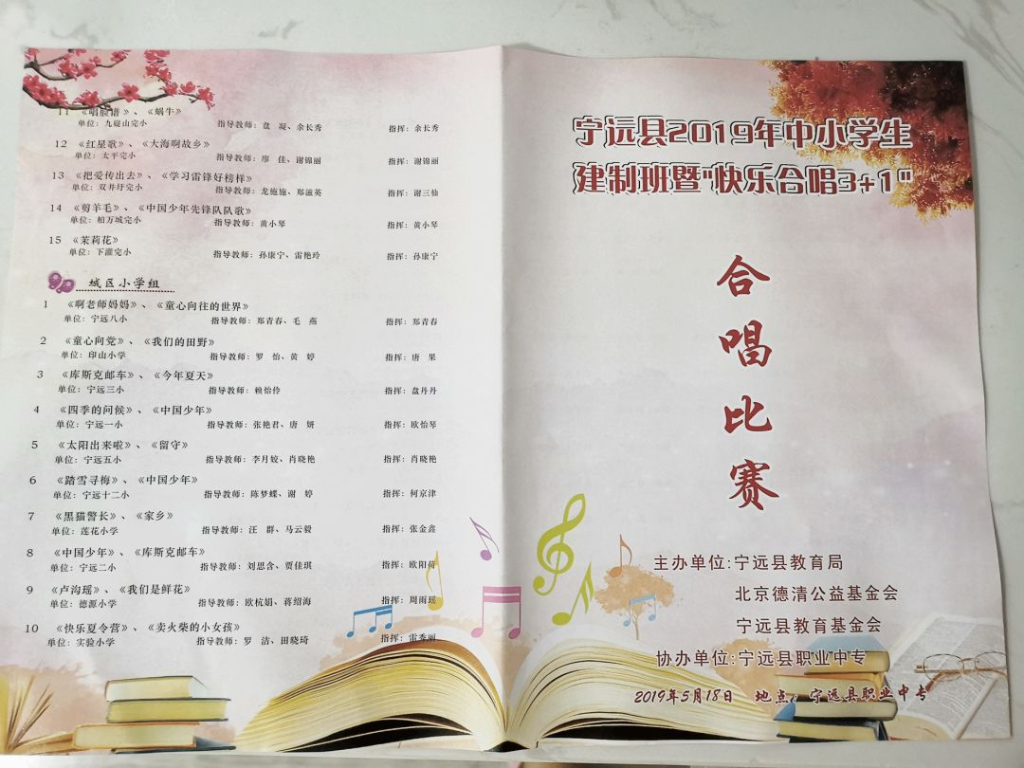 11 《唱脸谱》、《蜗牛》
单位：九嶷山完小 指导教师：袁 凝、余长秀 指挥：余长秀
12 《红星歌》、《大海啊故乡》
单位：太平完小 指导教师：廖 佳、谢锦丽 指挥：谢锦丽
13 《把爱传出去》、《学习雷锋好榜样》
单位：双井圩完小 指导教师：龙施施、郑滋英 指挥：谢三仙
14 《剪羊毛》、《中国少年先锋队队歌》
单位：柏万城完小 指导教师：黄小琴 指挥：黄小琴
15 《茉莉花》
单位：下灌完小 指导教师：孙康宁、雷艳玲 指挥：孙康宁
城区小学组
1 《啊老师妈妈》、《童心向往的世界》
单位：宁远八小 指导教师：郑青春、毛 燕 指挥：郑青春
2 《童心向党》、《我们的田野》
单位：印山小学 指导教师：罗 怡、黄 婷 指挥：唐 果
3 《库斯克邮车》、《今年夏天》
单位：宁远三小 指导教师：赖怡伶 指挥：盘丹丹
4 《四季的问候》、《中国少年》
单位：宁远一小 指导教师：张艳君、唐 妍 指挥：欧怡琴
5 《太阳出来啦》、《留守》
单位：宁远五小 指导教师：李月姣、肖晓艳 指挥：肖晓艳
6 《踏雪寻梅》、《中国少年》
单位：宁远十二小 指导教师：陈梦蝶、谢 婷 指挥：何京津
7 《黑猫警长》、《家乡》
单位：莲花小学 指导教师：汪 群、马云毅 指挥：张金鑫
8 《中国少年》、《库斯克邮车》
单位：宁远二小 指导教师：刘思含、贾佳琪 指挥：欧阳荷
9 《卢沟谣》、《我们是鲜花》
单位：德源小学 指导教师：欧杭娟、蒋绍海 指挥：周雨瑶
10 《快乐夏令营》、《卖火柴的小女孩》
单位：实验小学 指导教师：罗 洁、田晓琦 指挥：雷秀丽
宁远县2019年中小学生
建制班暨"快乐合唱3+1"
合
唱
比
赛
主办单位:宁远县教育局
北京德清公益基金会
宁远县教育基金会
协办单位:宁远县职业中专
2019年5月18日 地点：宁远县职业中专